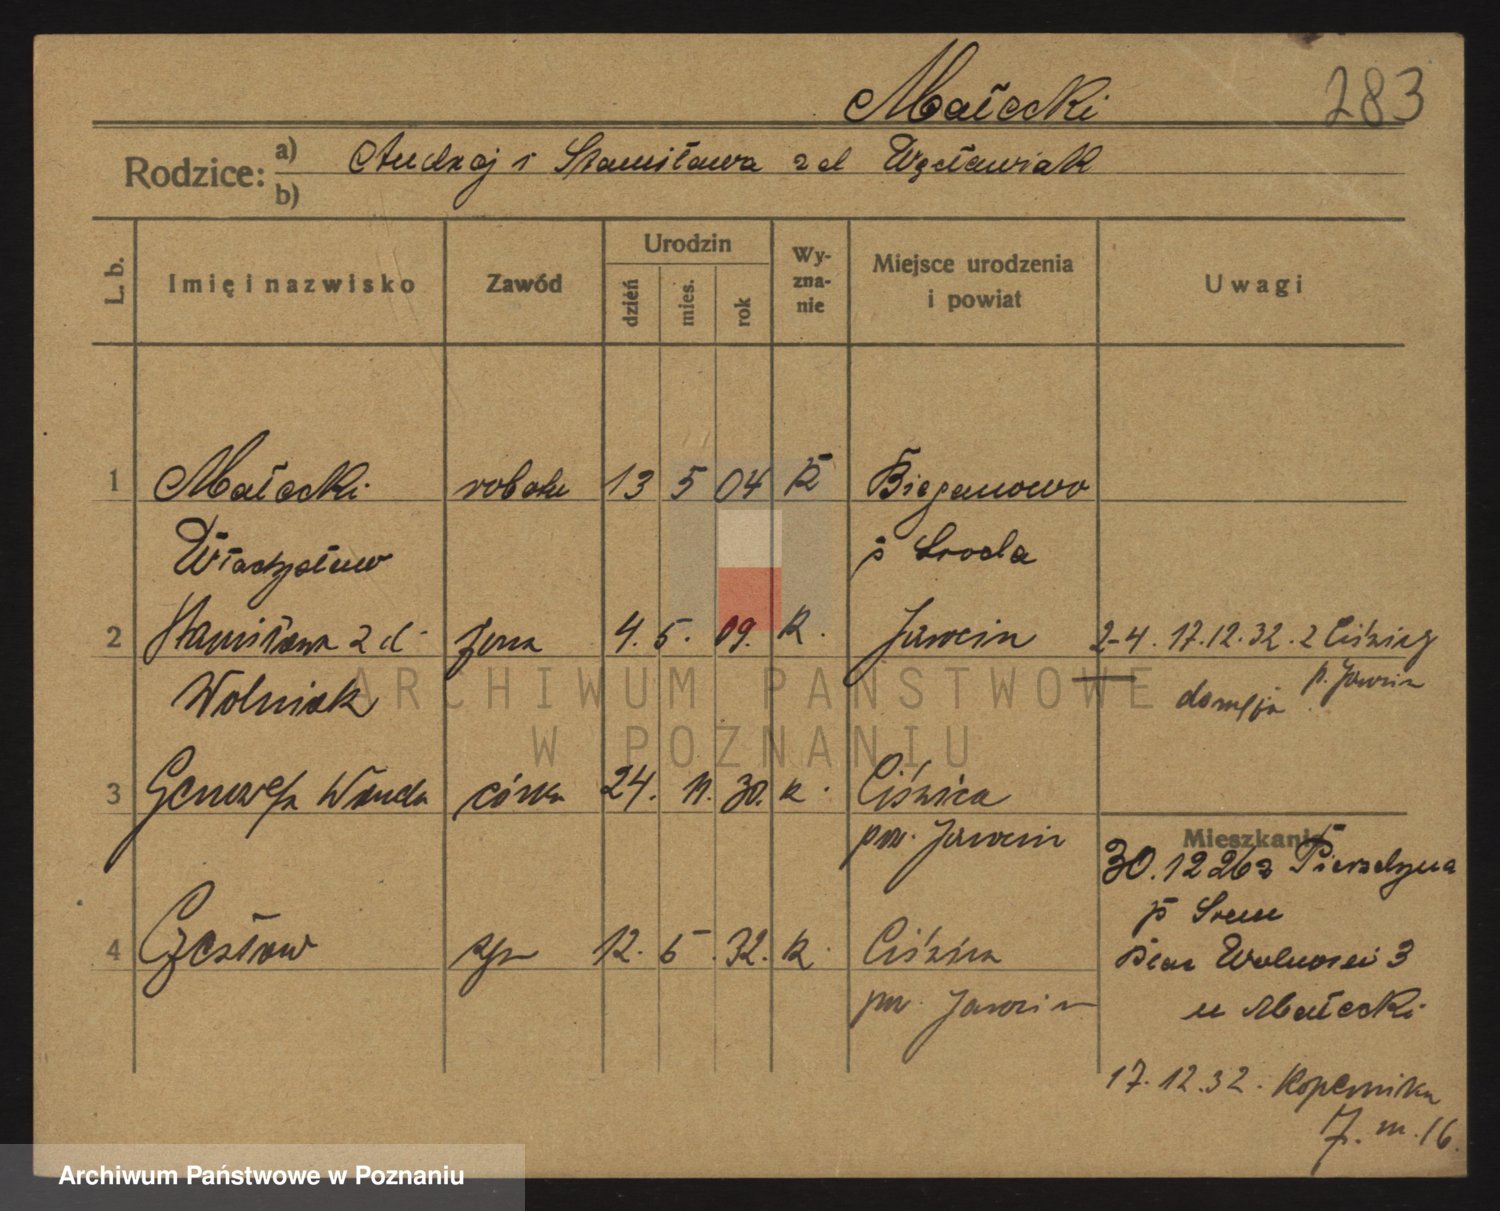 Małecki 283
Rodzice: a) Andrzej i Stanisława z d Węcławiak
b)
L. b. Imię i nazwisko Zawód Urodzin dzień mies. rok Wy-zna-nie Miejsce urodzenia i powiat Uwagi
1 Małecki robotn 13 5 04 k Bieganowo
Władysław p Środa
2 Stanisława z d żona 4. 5. 09. k. Jarocin 2-4. 17.12.32. z Ciświcy
Wolniak p. Jarocin
3 Genowefa Wanda córka 24. 11. 30. k. Ciświca
pow. Jarocin
Mieszkanie
30.12 26 z Pierzchna
p Śrem
4 Czesław syn 12. 5. 32. k. Ciświca
Plac Wolności 3
pow. Jarocin
u Małecki
17.12.32. Kopernika
7. m. 16.
ARCHIWUM PAŃSTWOWE
W POZNANIU
Archiwum Państwowe w Poznaniu